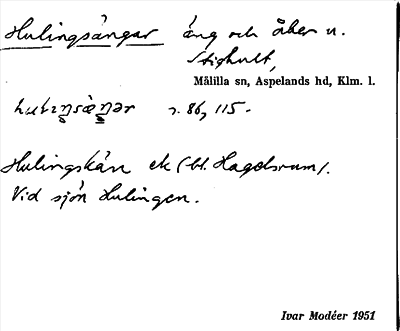 Hulingsängar äng och åker u.
Stighult,
Målilla sn, Aspelands hd, Klm. l.
r. 86, 115.
Hulingskån ek (bl. Hagelsrum).
Vid sjön Hulingen.
Ivar Modéer 1951